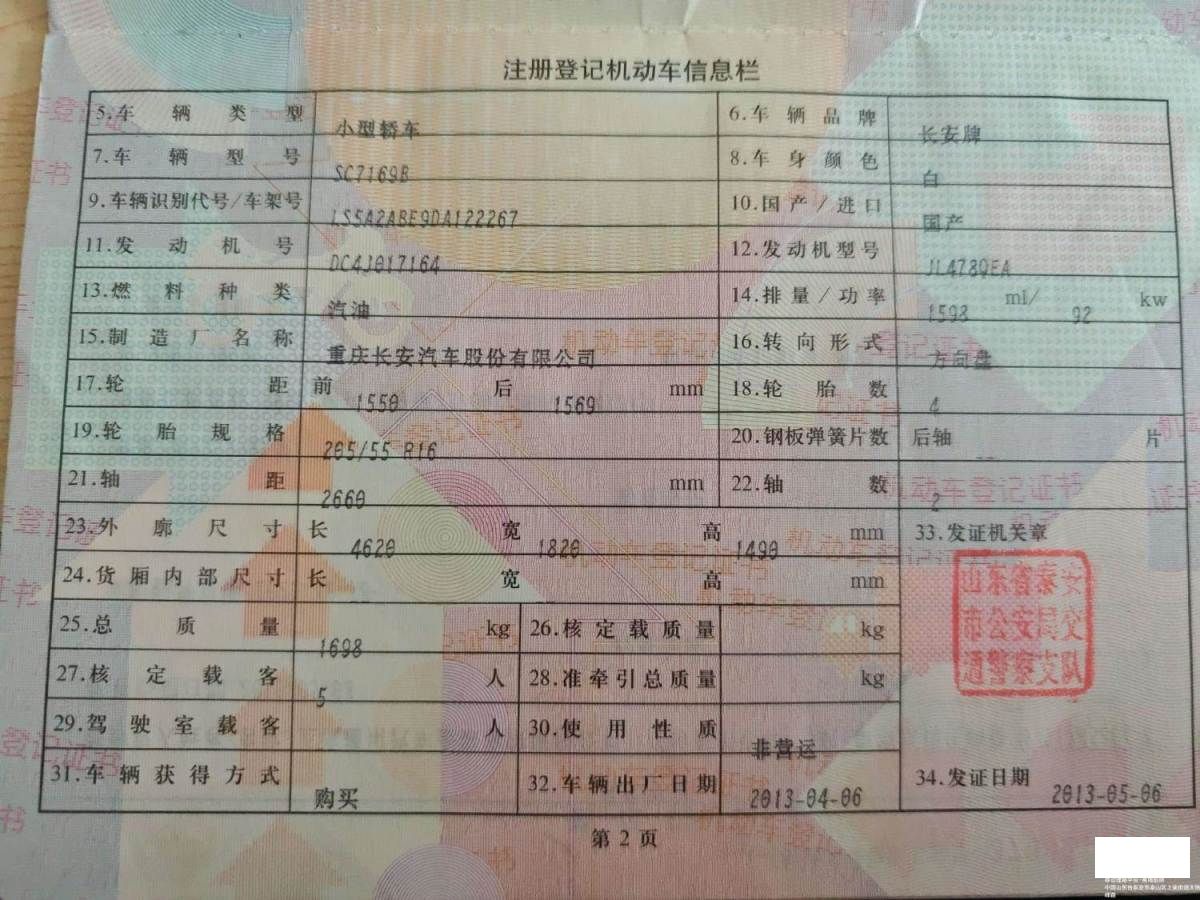 注册登记机动车信息栏
5.车辆类型 小型轿车 6.车辆品牌 长安牌
7.车辆型号 SC7169B 8.车身颜色 白
9.车辆识别代号/车架号 LS5A2ABE9DA122267 10.国产/进口 国产
11.发动机号 DC4J017164 12.发动机型号 JL478QEA
13.燃料种类 汽油 14.排量/功率 1598 ml/ 92 kw
15.制造厂名称 重庆长安汽车股份有限公司 16.转向形式 方向盘
17.轮距 前 1550 后 1569 mm 18.轮胎数 4
19.轮胎规格 205/55 R16 20.钢板弹簧片数 后轴 -- 片
21.轴距 2660 mm 22.轴数 2
23.外廓尺寸 长 4620 宽 1820 高 1490 mm 33.发证机关章
24.货厢内部尺寸 长 宽 高 mm
山东省泰安
市公安局交
通警察支队
25.总质量 1698 kg 26.核定载质量 kg
27.核定载客 5 人 28.准牵引总质量 kg
29.驾驶室载客 人 30.使用性质 非营运
31.车辆获得方式 购买 32.车辆出厂日期 2013-04-06 34.发证日期 2013-05-06
第 2 页